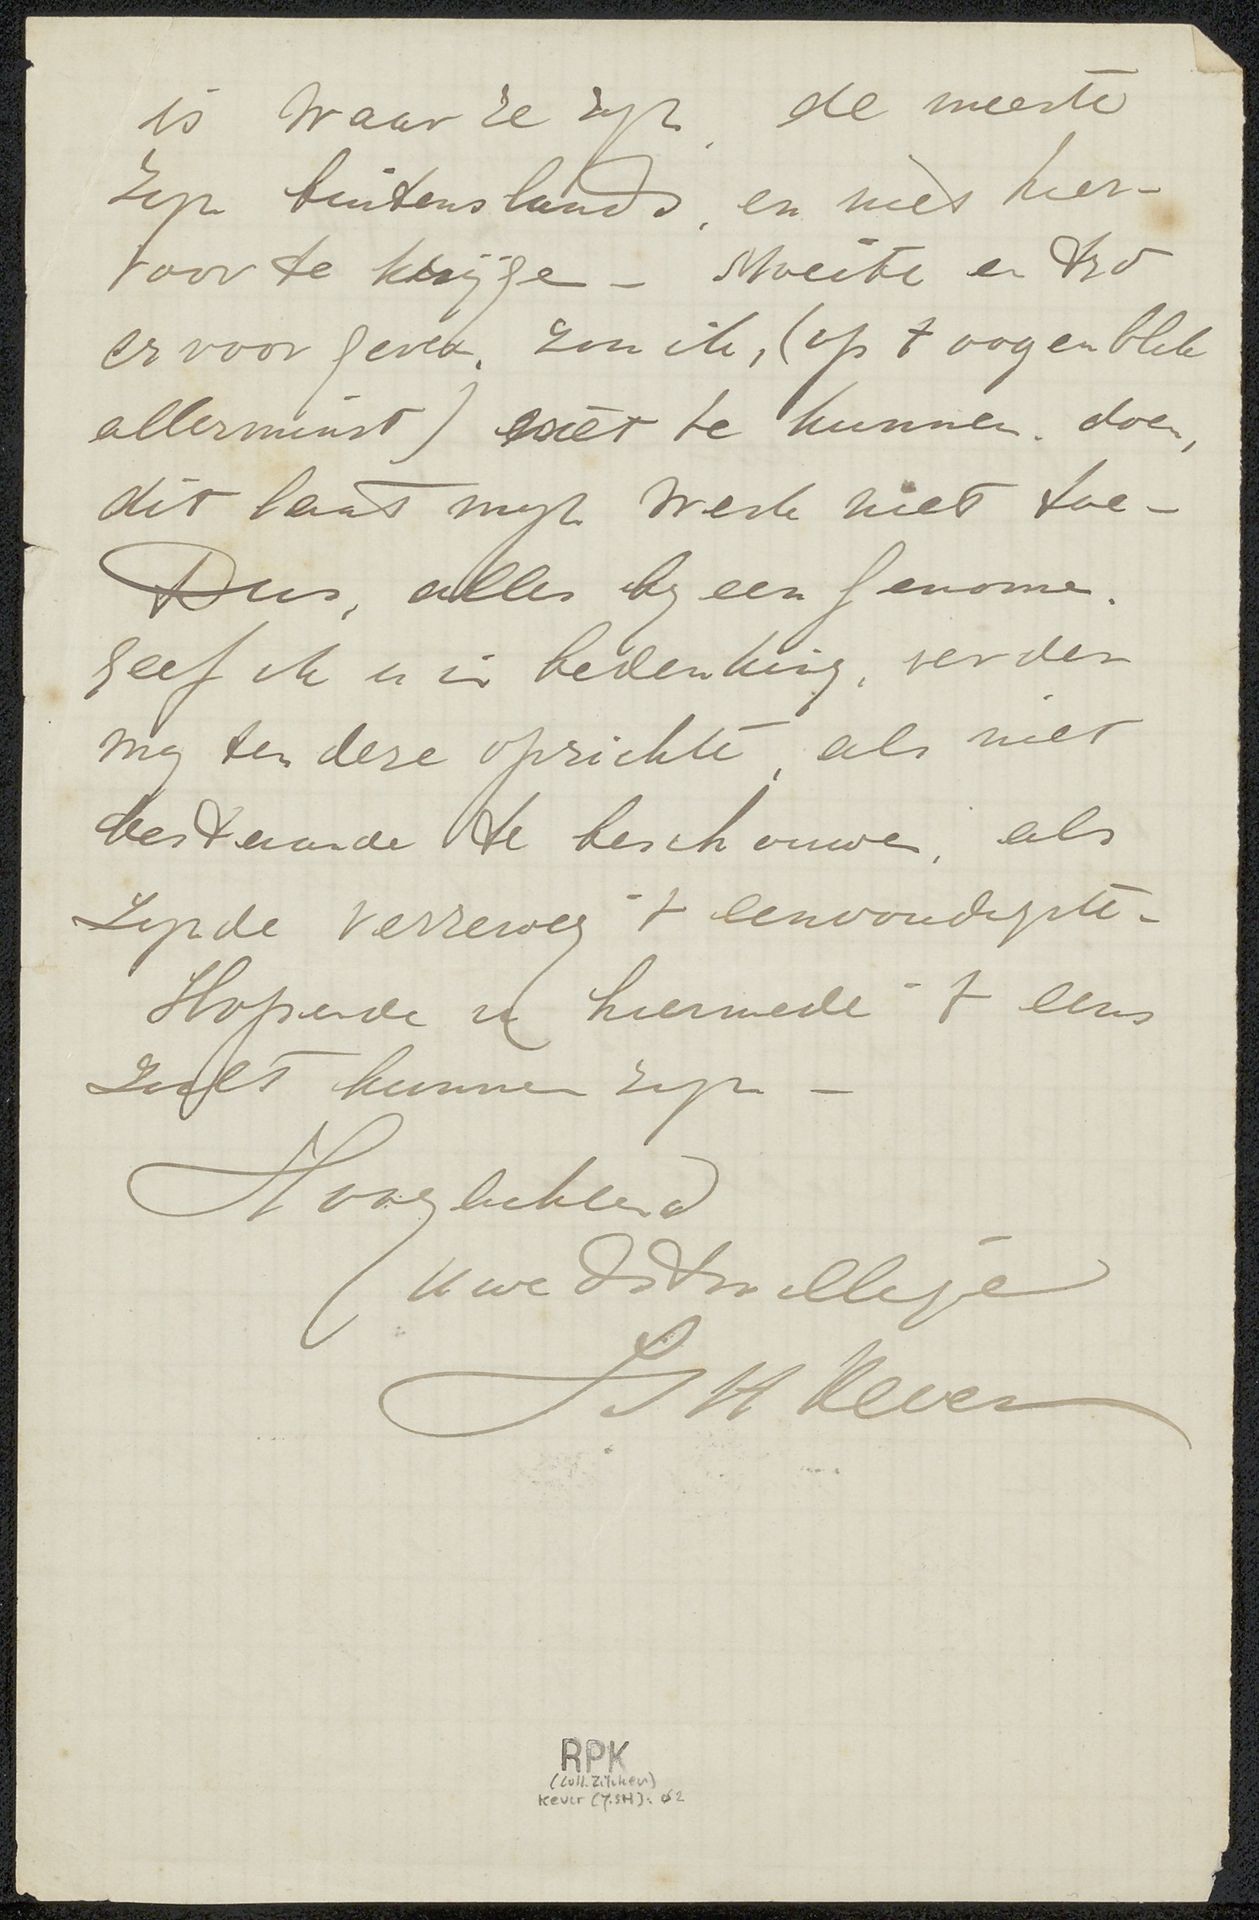 is waar ze zyn, de meeste
zyn buitenslands, en niet hier-
voor te krijgen – Moeite en tyd
ervoor geven, zou ik, (op 't oogenblik
allerminst) niet te kunnen doen,
dit laat myn werk niet toe –
Dus, alles by een genomen.
geef ik u in bedenking, verder
my ten deze opzichte, als niet
bestaande te beschouwen, als
zynde verreweg 't eenvoudigste –
Hopende u hiermede 't eens
zult kunnen zyn –
Hoogachtend
uwe dstwillige
J S H Kever
RPK
(Coll. Zilcken)
Kever (J.SH): 62